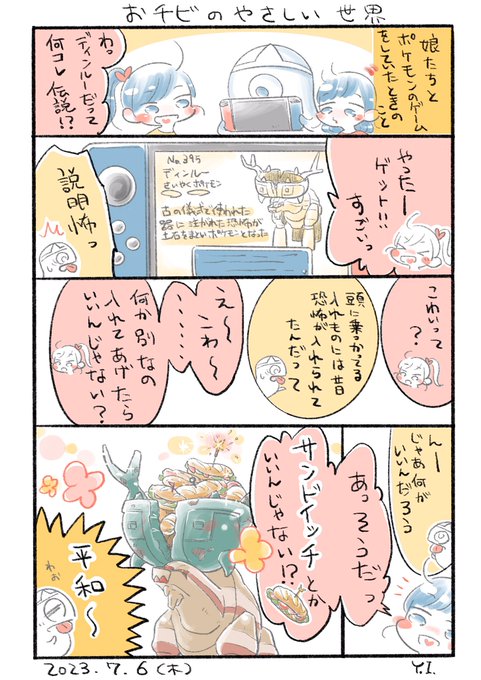 おチビのやさしい世界
娘たちと
ポケモンのゲーム
をしていたときの
こと
わっ
ディンルーだって
何コレ伝説!?
やったー
ゲット!!!
すごいっ
No.395
ディンルー
さいやくポケモン
古の儀式で使われた
器に注がれた恐怖が
土石をまといポケモンとなった
説明怖っ
こわいって
?
頭に乗っかってる
入れものには昔
恐怖が入れられて
たんだって
え〜
こわ〜
……
何か別なの
入れてあげたら
いいんじゃない?
んー
じゃあ何が
いいんだろう
あっそうだっ
サンドイッチとか
いいんじゃない!?
平和〜
わお
2023.7.6(木)
Y.I.